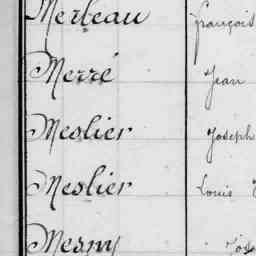 Merleau françois
Merré Jean
Meslier Joseph
Meslier Louis
Mesny